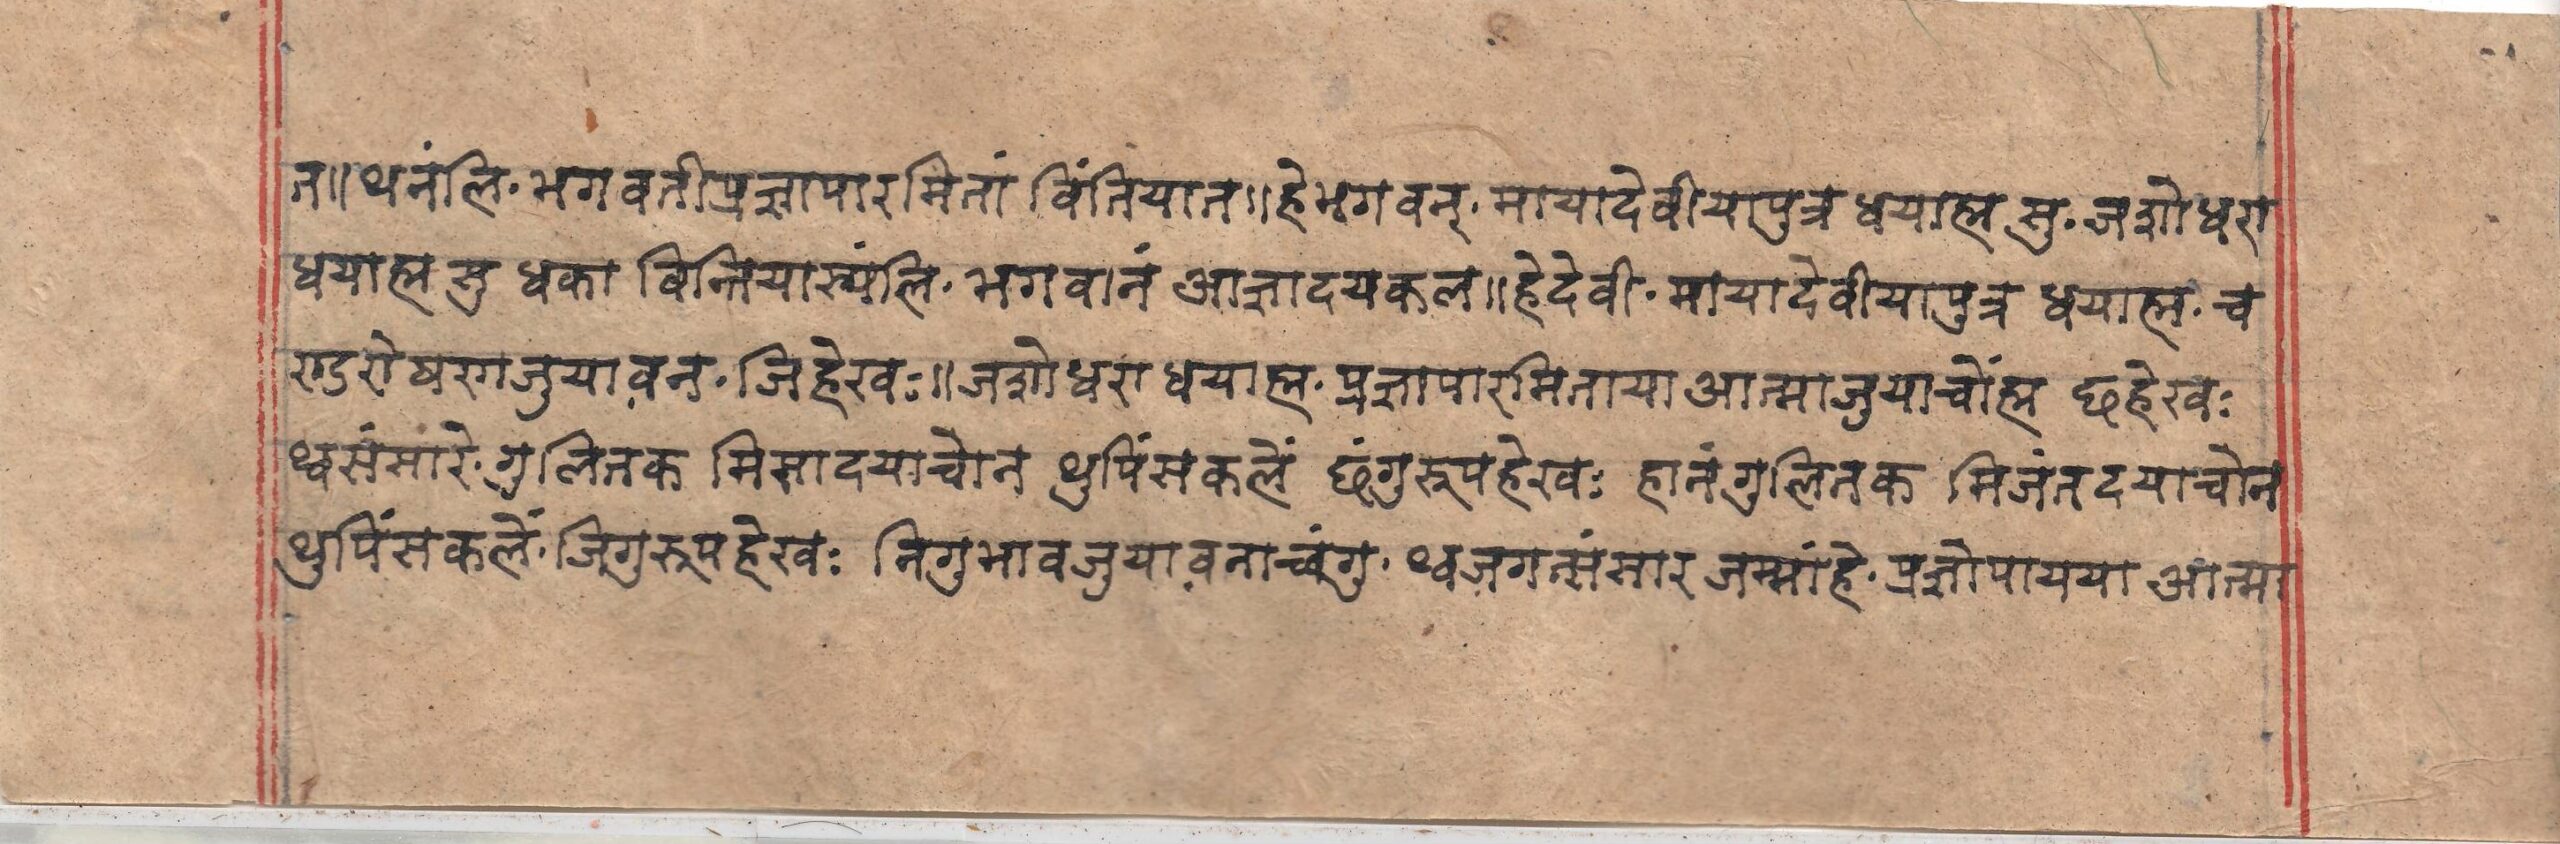 न॥थनंलि·भगवतीप्रज्ञापारमितां विंतियात॥हेभगवन्·मायादेवीयापुत्र धयाह्म सु·जशोधरा
धयाह्म सु धका विन्तियास्यंलि·भगवानं आज्ञादयकल॥हेदेवी·मायादेवीयापुत्र धयाह्म·च
ण्डरोषरगजुयावन·जिहेखः॥जशोधरा धयाह्म·प्रज्ञापारमितायाआत्माजुयाचोंह्म छहेखः
थ्वसंसारे·गुलितक मिसादयाचोन थुपिंसकलें छंगुरूपहेखः हानंगुलितक मिजंतदयाचोन
थुपिंसकलें·जिगुरूपहेखः निगुभावजुयावनाच्वंगु·थ्वजगत्संसार जम्मांहे·प्रज्ञोपायया आत्मा